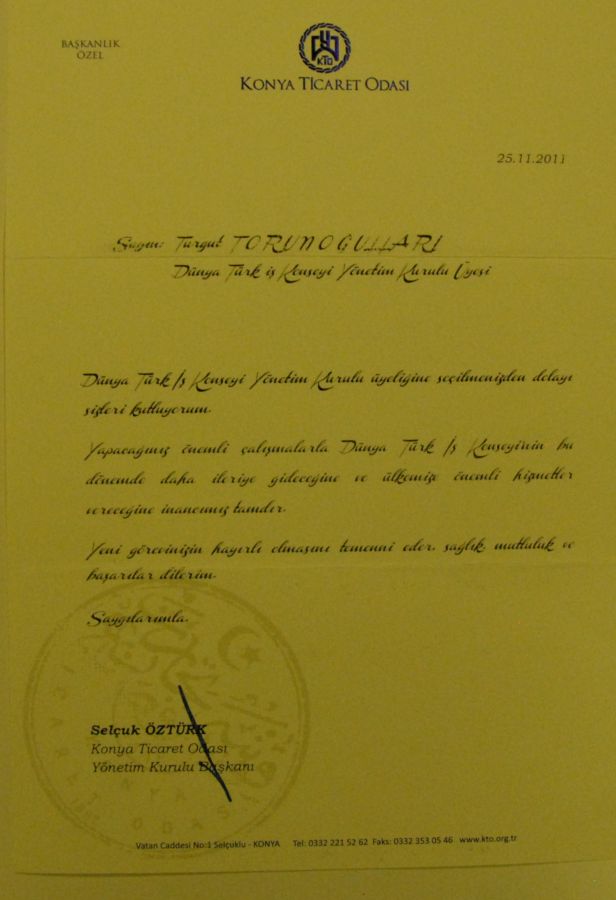 BAŞKANLIK
ÖZEL
KTO
KONYA TİCARET ODASI
25.11.2011
Sayın: Turgut TORUNOĞULLARI
Dünya Türk iş Konseyi Yönetim Kurulu Üyesi
Dünya Türk İş Konseyi Yönetim Kurulu üyeliğine seçilmenizden dolayı
sizleri kutluyorum.
Yapacağınız önemli çalışmalarla Dünya Türk İş Konseyi'nin bu
dönemde daha ileriye gideceğine ve ülkemize önemli hizmetler
vereceğine inancımız tamdır.
Yeni görevinizin hayırlı olmasını temenni eder, sağlık, mutluluk ve
başarılar dilerim.
Saygılarımla.
Selçuk ÖZTÜRK
Konya Ticaret Odası
Yönetim Kurulu Başkanı
Vatan Caddesi No:1 Selçuklu - KONYA Tel: 0332 221 52 62 Faks: 0332 353 05 46 www.kto.org.tr